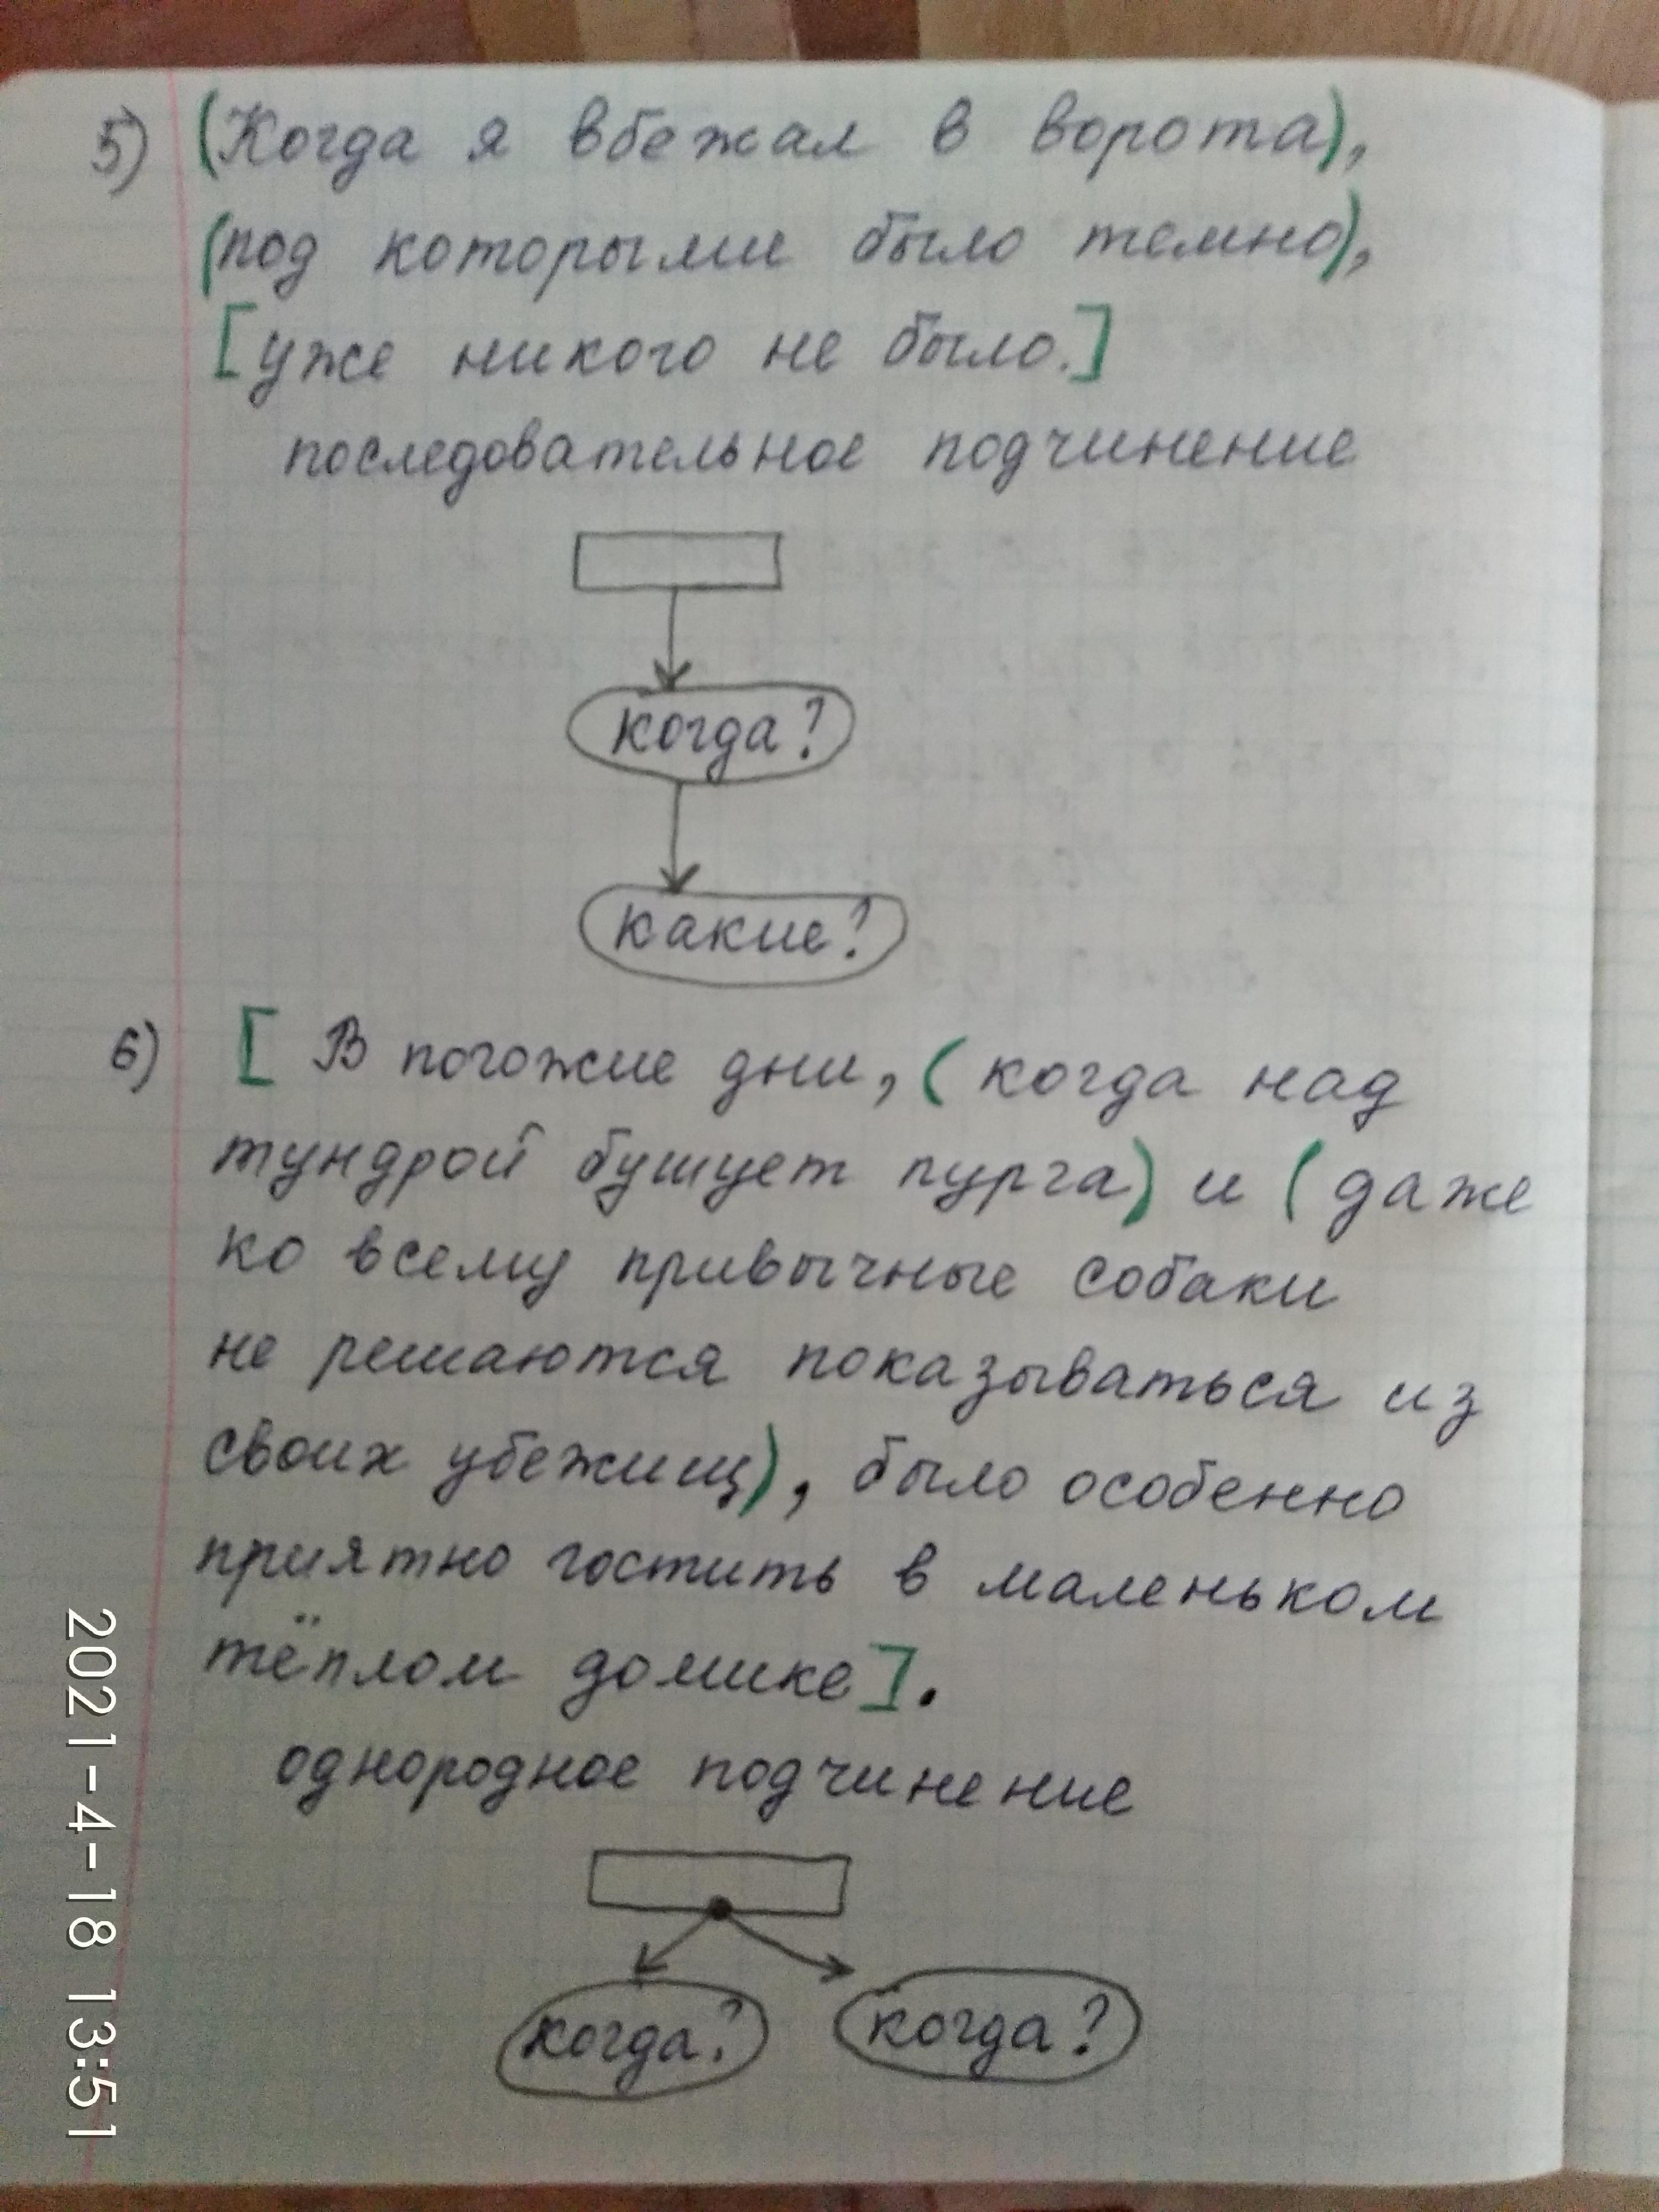 5) (Когда я вбежал в ворота),
(под которыми было темно),
[уже никого не было.]
последовательное подчинение
когда?
какие?
6) [ В погожие дни, ( когда над
тундрой бушует пурга) и ( даже
ко всему привычные собаки
не решаются показываться из
своих убежищ), было особенно
приятно гостить в маленьком
тёплом домике].
однородное подчинение
когда? когда?
2021-4-18 13:51